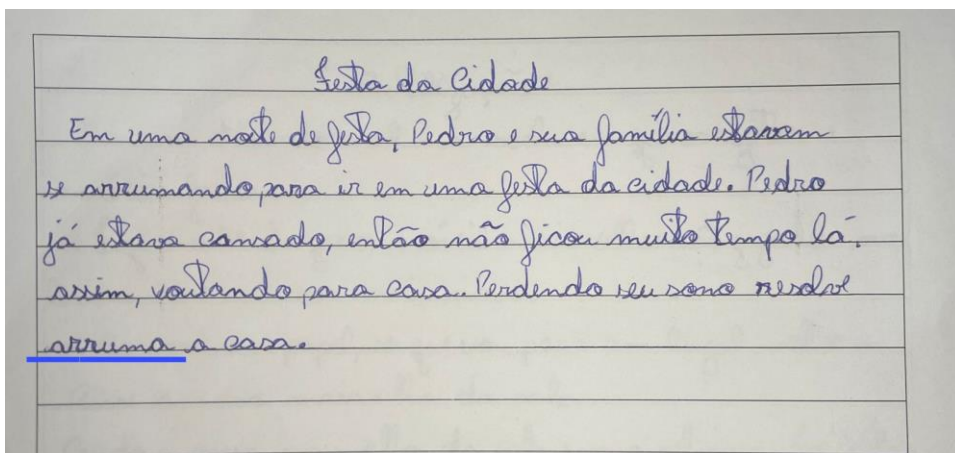 Festa da Cidade
Em uma noite de festa, Pedro e sua família estavam
se arrumando para ir em uma festa da cidade. Pedro
já estava cansado, então não ficou muito tempo lá.
assim, voutando para casa. Perdendo seu sono resolve
arruma a casa.